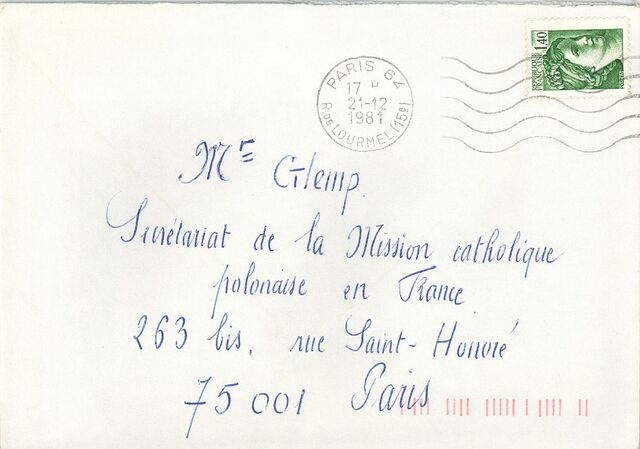 1,40
PARIS 64
17 H
21-12
1981
R. DE LOURMEL (15e)
Mr Glemp.
Secrétariat de la Mission catholique
polonaise en France
263 bis, rue Saint-Honoré
75 001 Paris